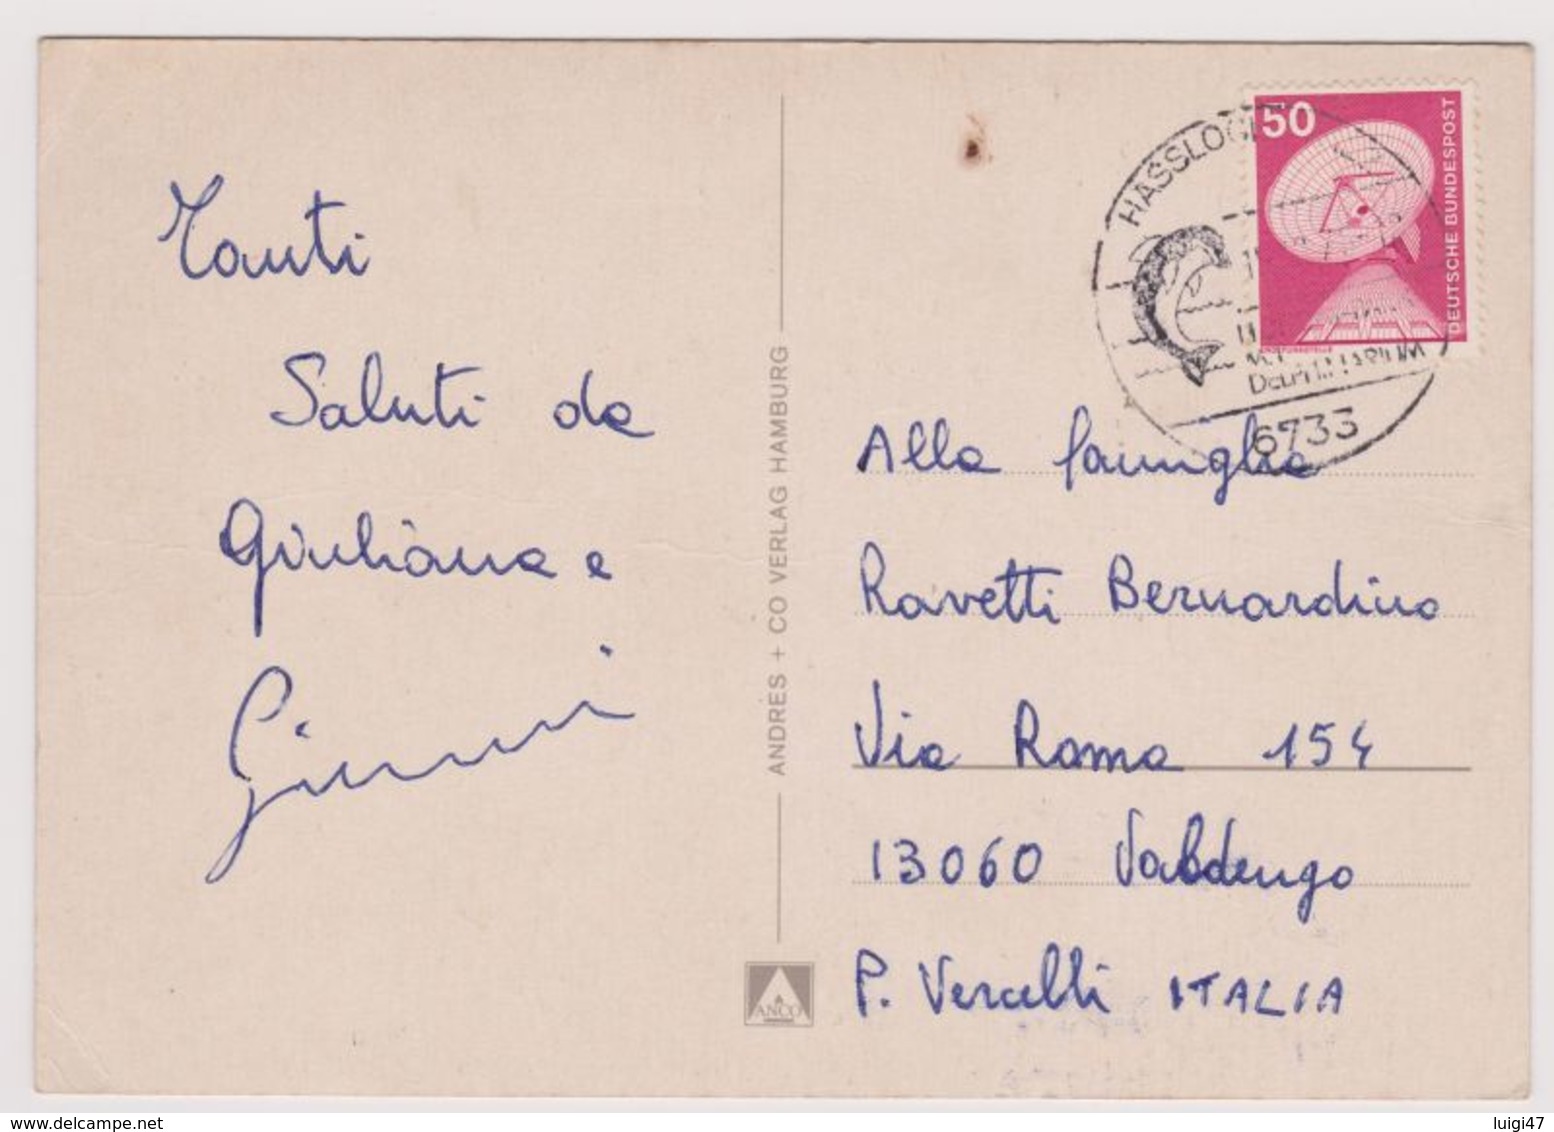 Tanti
Saluti da
Giuliana e
Gianni
ANDRES + CO VERLAG HAMBURG
ANCO
50
DEUTSCHE BUNDESPOST
HASSLOCH
DELPHINARIUM
6733
Alla famiglia
Ravetti Bernardino
Via Roma 154
13060 Valdengo
P. Vercelli ITALIA
luigi47